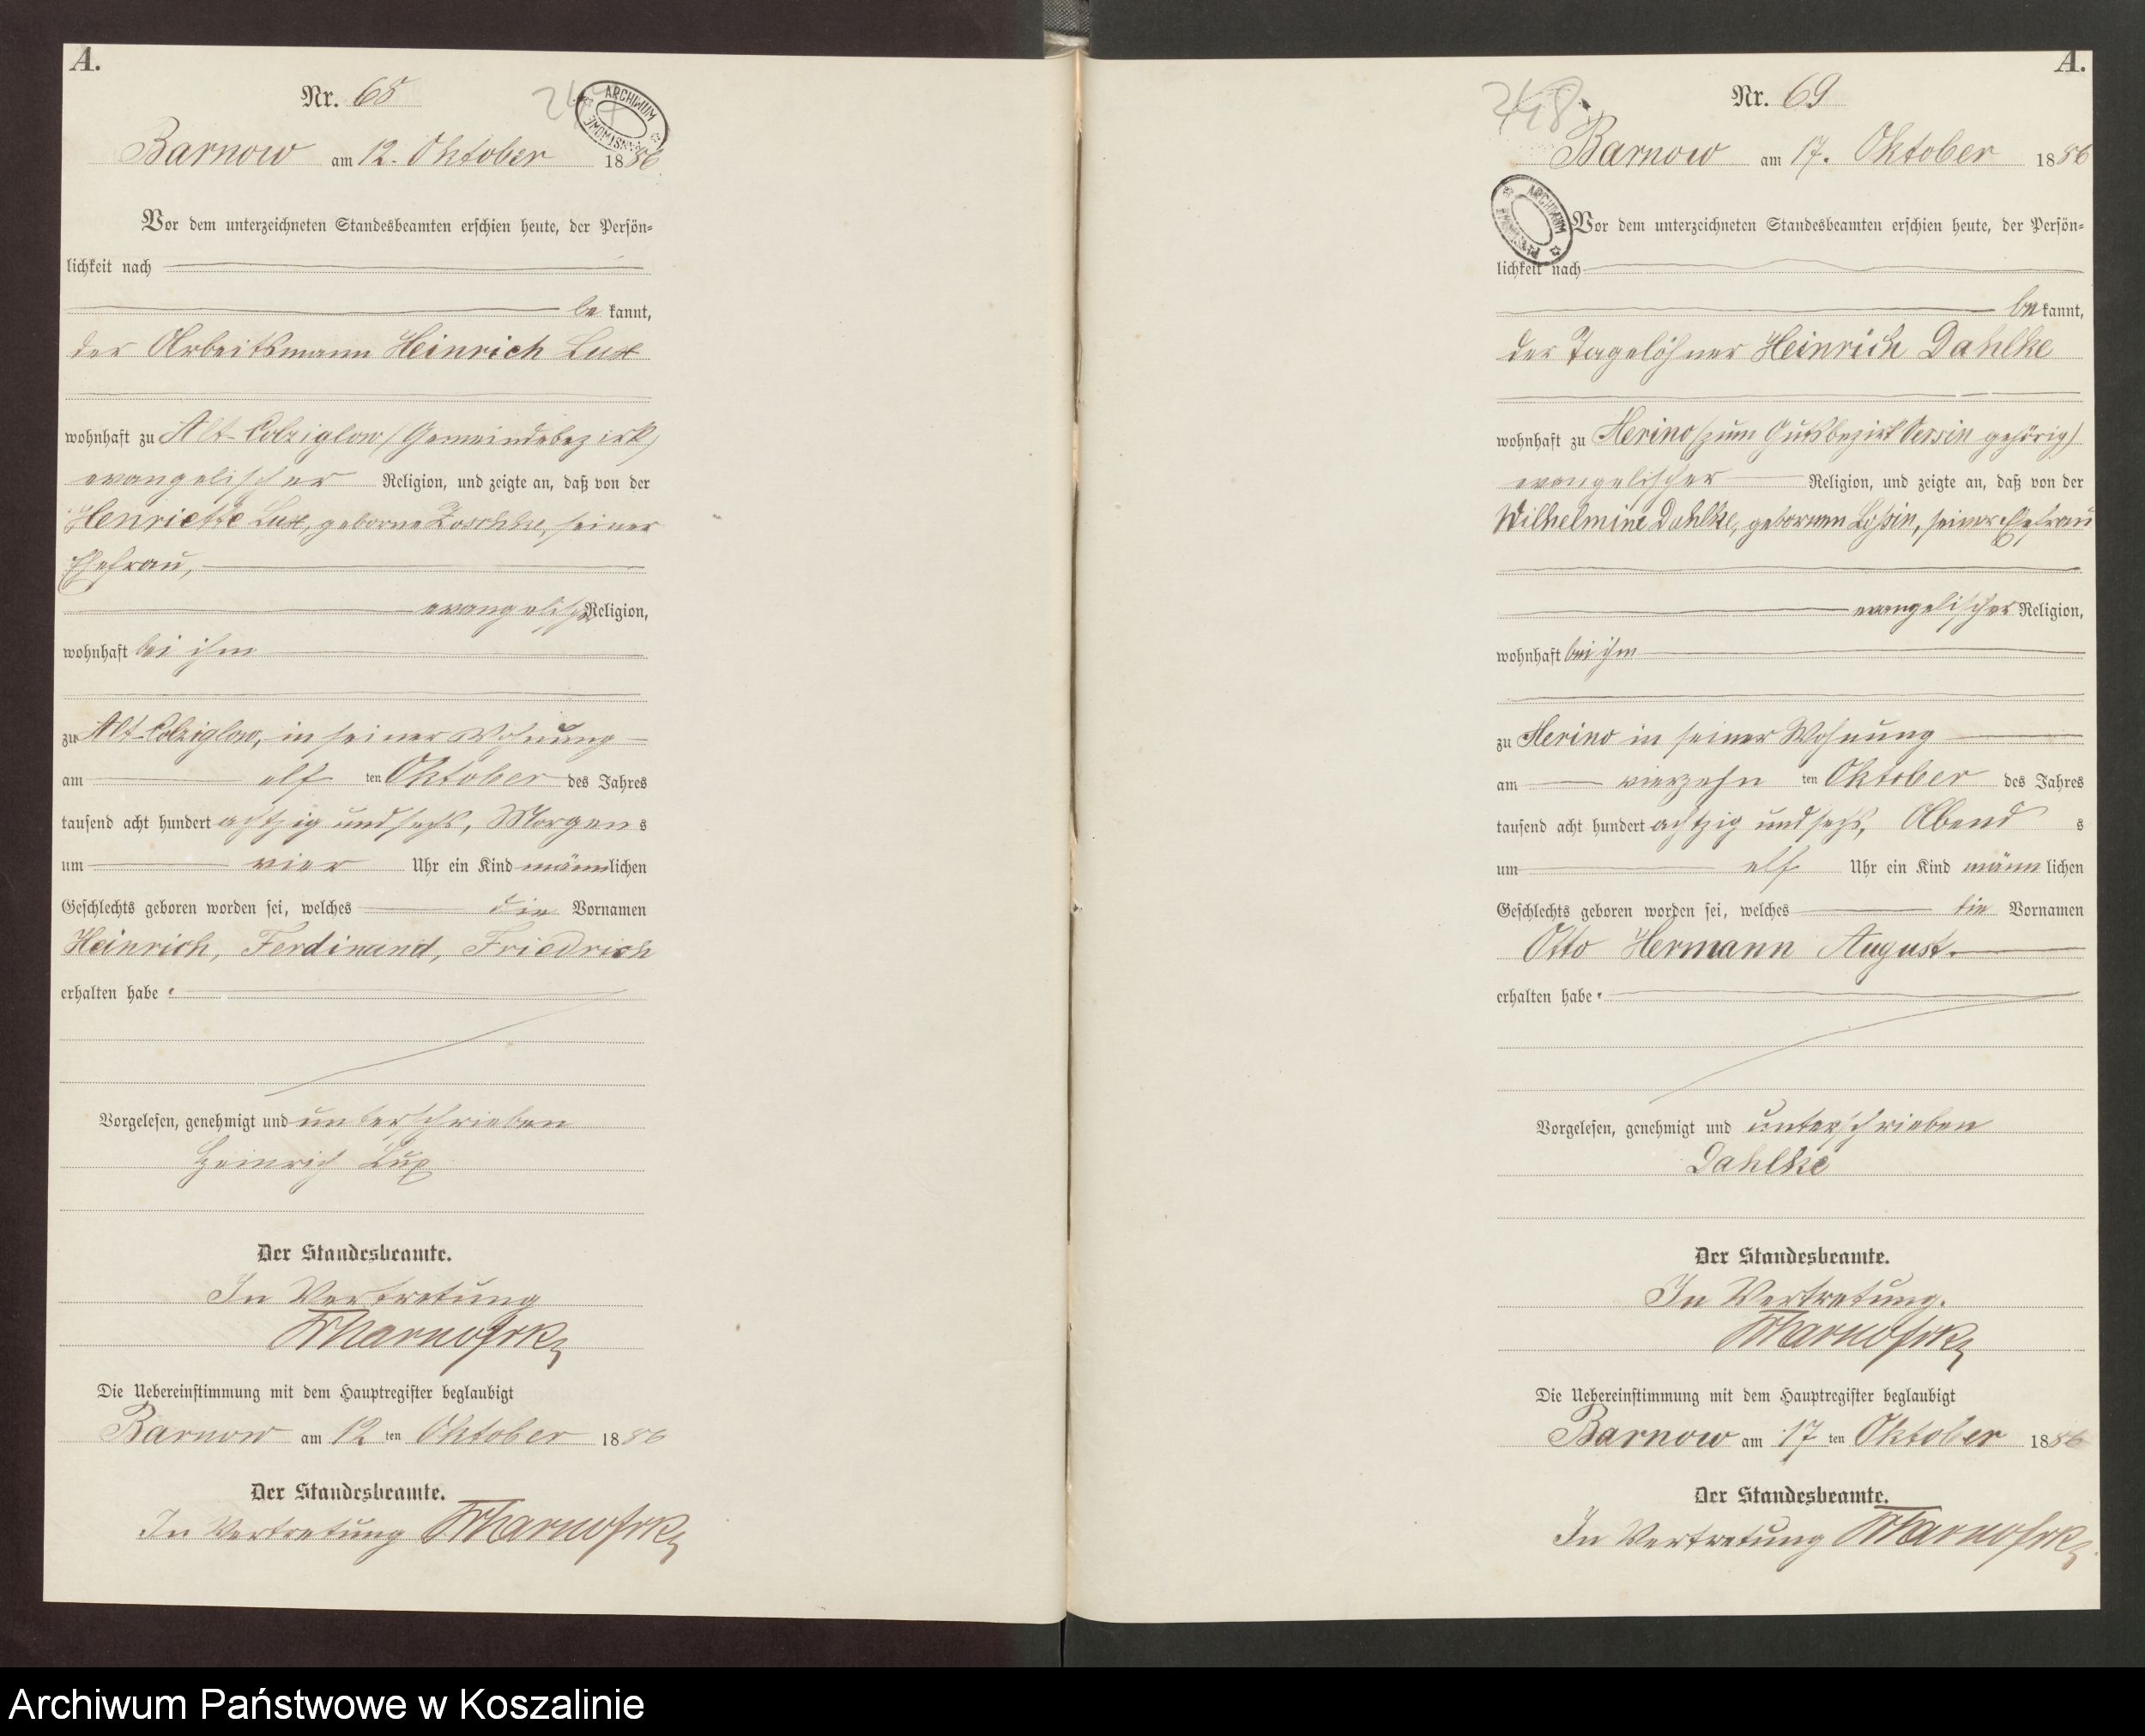 A.
Nr. 68
247
ARCHIWUM PAŃSTWOWE
Barnow am 12. Oktober 1886
Vor dem unterzeichneten Standesbeamten erschien heute, der Persön-
lichkeit nach
be kannt,
der Arbeitsmann Heinrich Lux
wohnhaft zu Alt-Colziglow (Gemeindebezirk)
evangelischer Religion, und zeigte an, daß von der
Henriette Lux, geborne seiner
Ehefrau,
evangelischer Religion,
wohnhaft bei ihm
zu Alt-Colziglow, in seiner Wohnung
am elf ten Oktober des Jahres
tausend acht hundert achtzig und sechs, Morgens
um vier Uhr ein Kind männlichen
Geschlechts geboren worden sei, welches die Vornamen
Heinrich, Ferdinand, Friedrich
erhalten habe.
Vorgelesen, genehmigt und unterschrieben
Heinrich Lux
Der Standesbeamte.
In Vertretung
Die Uebereinstimmung mit dem Hauptregister beglaubigt
Barnow am 12 ten Oktober 1886
Der Standesbeamte.
In Vertretung
A.
Nr. 69
248
ARCHIWUM PAŃSTWOWE
Barnow am 17. Oktober 1886
Vor dem unterzeichneten Standesbeamten erschien heute, der Persön-
lichkeit nach
be kannt,
der Tagelöhner Heinrich Dahlke
wohnhaft zu Merino (zum Gutsbezirk Versin gehörig)
evangelischer Religion, und zeigte an, daß von der
Wilhelmine Dahlke, gebornen Loßin, seiner Ehefrau
evangelischer Religion,
wohnhaft bei ihm
zu Merino in seiner Wohnung
am vierzehn ten Oktober des Jahres
tausend acht hundert achtzig und sechs, Abend s
um elf Uhr ein Kind männ lichen
Geschlechts geboren worden sei, welches die Vornamen
Otto Hermann August.
erhalten habe.
Vorgelesen, genehmigt und unterschrieben
Dahlke
Der Standesbeamte.
In Vertretung.
Die Uebereinstimmung mit dem Hauptregister beglaubigt
Barnow am 17 ten Oktober 1886
Der Standesbeamte.
In Vertretung
Archiwum Państwowe w Koszalinie